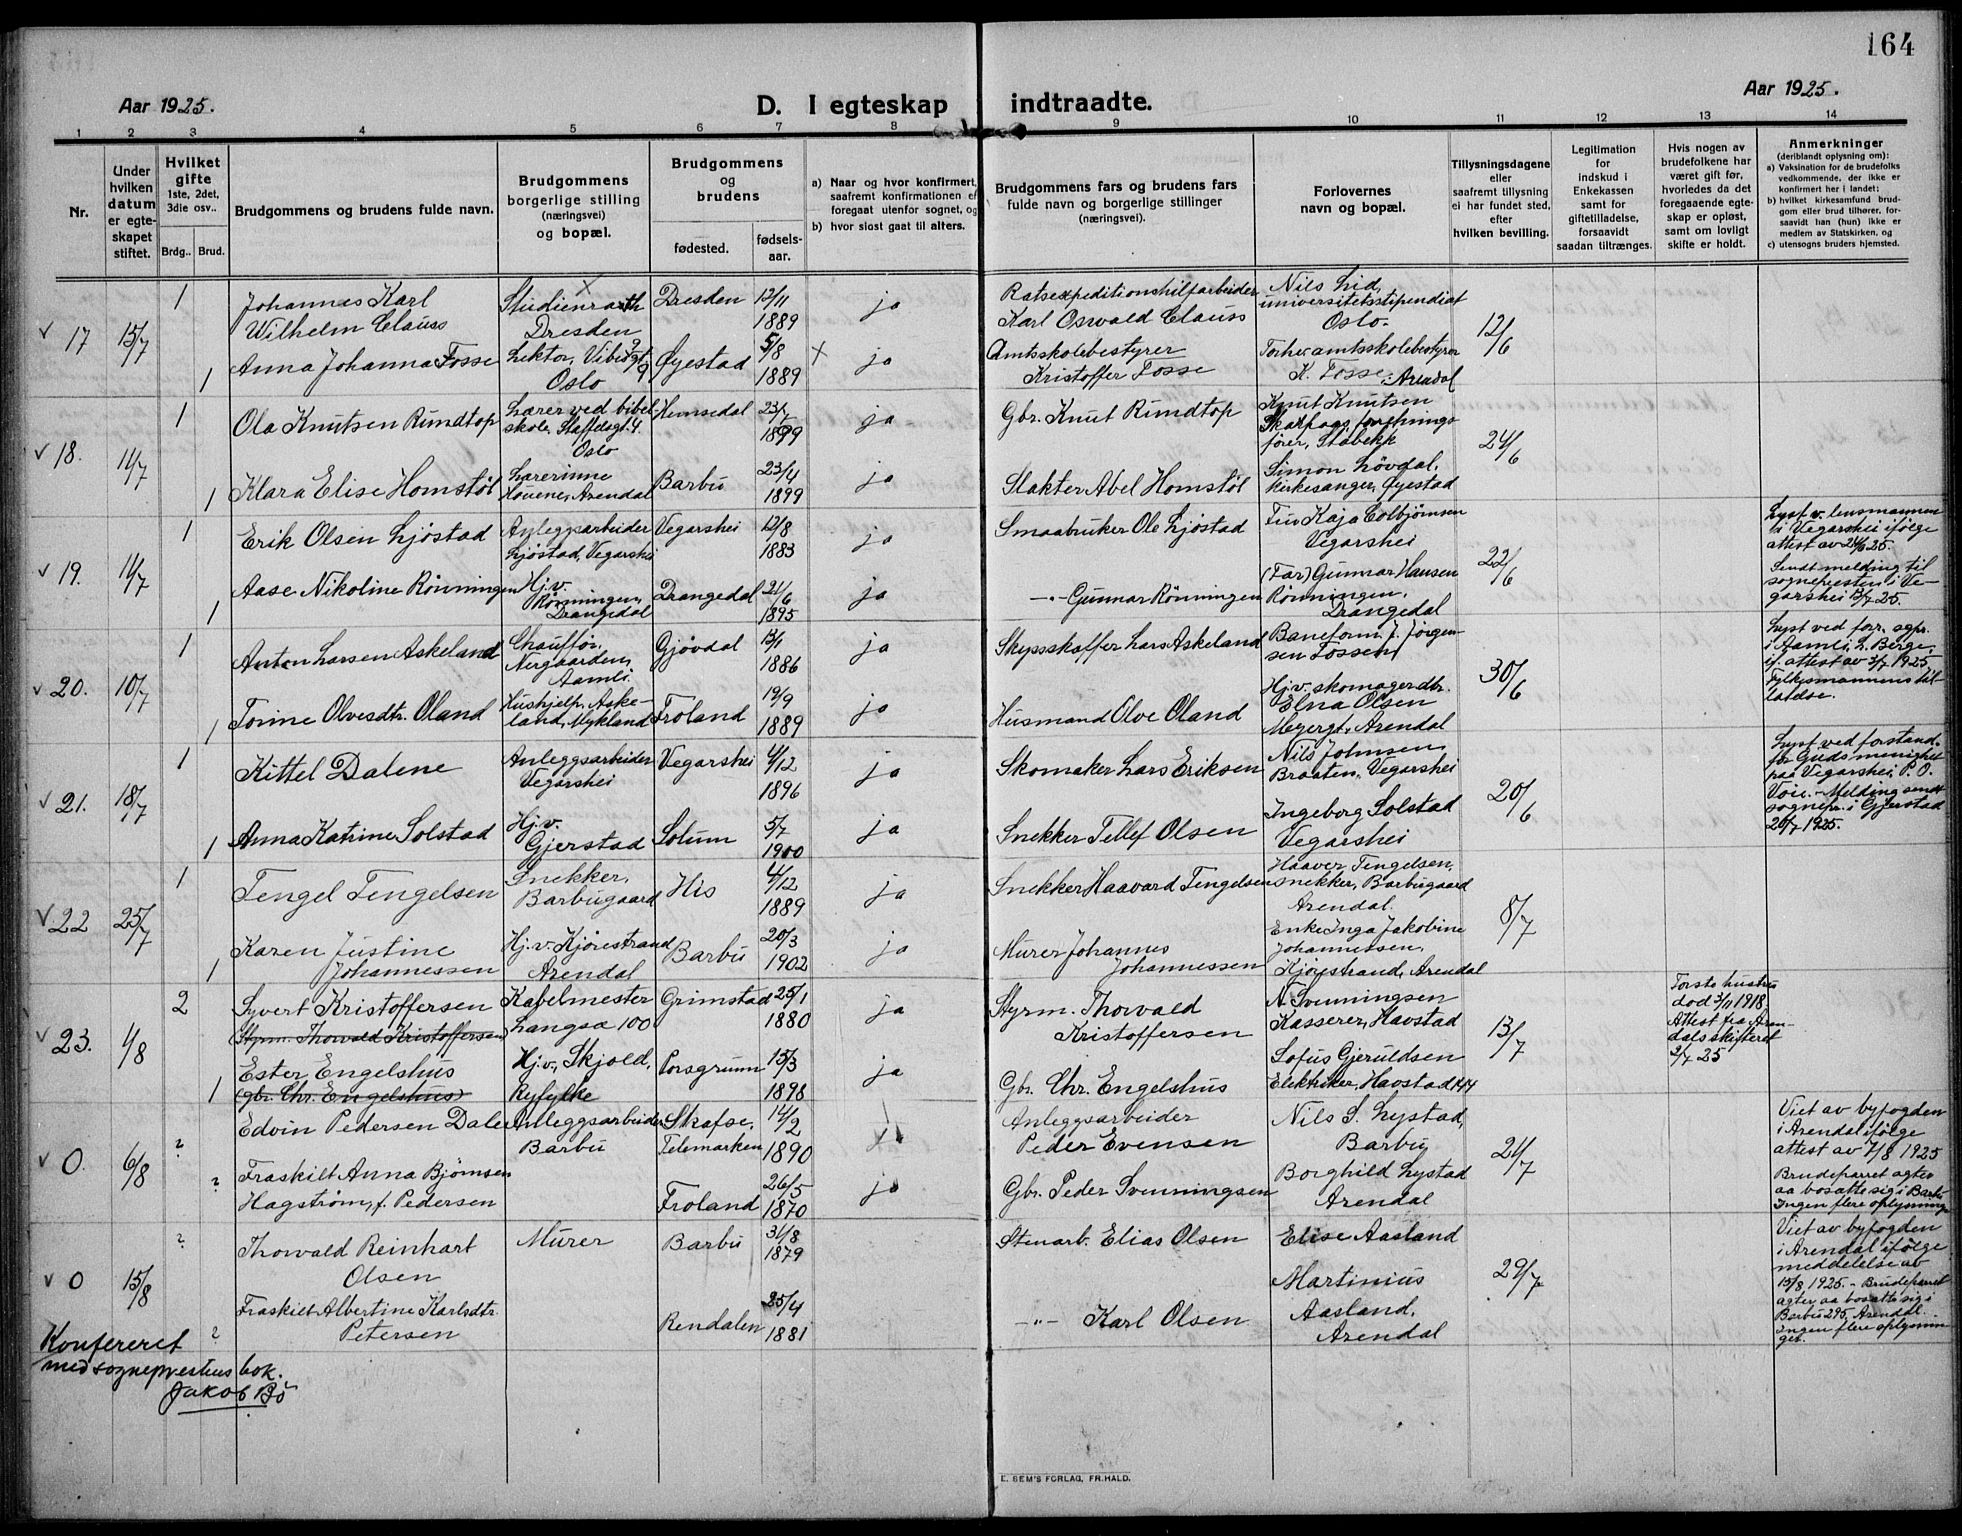 164
Aar 1925.
D. I egteskap indtraadte.
Aar 1925.
1 2 3 4 5 6 7 8 9 10 11 12 13 14
Nr.
Under hvilken datum er egteskapet stiftet.
Hvilket gifte 1ste, 2det, 3die osv..
Brdg.. Brud.
Brudgommens og brudens fulde navn.
Brudgommens borgerlige stilling (næringsvei) og bopæl.
Brudgommens og brudens
fødested.
fødsels-aar.
a) Naar og hvor konfirmert, saafremt konfirmationen er foregaat utenfor sognet, og
b) hvor sidst gaat til alters.
Brudgommens fars og brudens fars fulde navn og borgerlige stillinger (næringsvei).
Forlovernes navn og bopæl.
Tillysningsdagene eller saafremt tillysning ei har fundet sted, efter hvilken bevilling.
Legitimation for indskud i Enkekassen samt for giftetilladelse, forsaavidt saadan tiltrænges.
Hvis nogen av brudefolkene har været gift før, hvorledes da det foregaaende egteskap er opløst, samt om lovligt skifte er holdt.
Anmerkninger
(deriblandt oplysning om):
a) Vaksination for de brudefolks vedkommende, der ikke er konfirmert her i landet;
b) hvilket kirkesamfund brudgom eller brud tilhører, forsaavidt han (hun) ikke er medlem av Statskirken, og
c) utensogns bruders hjemsted.
v 17 15/7 1 Johannes Karl Wilhelm Clauss Studienrath Dresden Dresden 12/11 1889 ja Ratsexpeditionshilfarbeider Karl Oswald Clauss Nils Lid, universitetsstipendiat Oslo. 12/6
1 Anna Johanna Fosse Lektor, Vibesgt 9 Oslo Øyestad 5/8 1889 x ja Amtsskolebestyrer Kristoffer Fosse Forhv amtsskolebestyrer K. Fosse, Arendal
v 18. 11/7 1 Ola Knutsen Rundtop Lærer ved bibelskole, Staffeldtsgt. 4. Oslo Hemsedal 23/7 1899 ja Gbr. Knut Rundtop Knut Knutsen Skarpaas, forretningsfører, Stabekk 24/6
1 Klara Elise Homstøl Lærerinne Houene, Arendal Barbu 23/4 1899 ja Slakter Abel Homstøl Simon Løvdal, kirkesanger, Øyestad
v 19. 11/7 1 Erik Olsen Ljøstad Anleggsarbeider Ljøstad, Vegarshei Vegarshei 12/8 1883 ja Smaabruker Ole Ljøstad Fru Kaja Colbjørnsen Vegarshei 22/6 Lyst v. lensmannen i Vegarshei ifølge attest av 24/6 25.
1 Aase Nikoline Rønningen Hj.v. Rønningen, Drangedal Drangedal 21/6 1895 ja —"— Gunnar Rønningen (Far) Gunnar Hansen Rønningen, Drangedal Sendt melding til sognepresten i Vegarshei 13/7 25.
v 20. 10/7 1 Anton Larsen Askeland Chauffør, Nergaarden, Aamli. Gjøvdal 13/1 1886 ja Skyssskaffer Lars Askeland Baneform. J. Jørgensen Fossen 30/6 Lyst ved forr. sgpr. i Aamli, L. Berge, if. attest av 3/7 1925, Fylkesmannens tillatelse.
1 Torine Olvesdtr. Oland Hushjelp, Askeland, Mykland Froland 19/9 1889 ja Husmand Olve Oland Hj.v. skomagerdtr. Elna Olsen Meyergt. Arendal
v 21. 18/7 1 Kittel Dalene Anleggsarbeider Vegarshei Vegarshei 4/12 1896 ja Skomaker Lars Eriksen Nils Johnsen, Braaten, Vegarshei 20/6 Lyst ved forstand. for Guds menighet paa Vegarshei, P. O. Voie. - Melding sendt sognepr. i Gjerstad 20/7 1925.
1 Anna Katrine Solstad Hj.v. Gjerstad Solum 5/7 1900 ja Snekker Tellef Olsen Ingeborg Solstad Vegarshei
v 22 25/7 1 Tengel Tengelsen Snekker, Barbugaard His 4/12 1889 ja Snekker Haavard Tengelsen Haaver Tengelsen, snekker, Barbugaard Arendal. 8/7
1 Karen Justine Johannessen Hj.v. Kjørestrand Arendal Barbu 20/3 1902 ja Murer Johannes Johannessen Enke Inga Jakobine Johannessen, Kjørestrand, Arendal
v 23. 1/8 2 Syvert Kristoffersen (Styrm. Thorvald Kristoffersen) Kabelmester Langsæ 100 Grimstad 25/1 1880 ja Styrm. Thorvald Kristoffersen N. Svenningsen Kasserer, Havstad 13/7 Første hustru død 3/11 1918. Attest fra Arendals skifteret 2/7 25
1 Ester Engelshus (gbr. Chr. Engelshus) Hj.v., Skjold, Ryfylke Porsgrunn 15/3 1898 ja Gbr. Chr. Engelshus Sofus Gjeruldsen Elektriker, Havstad
v 0. 6/8 ? Edvin Pedersen Dale Anleggsarbeider Barbu Skafse, Telemarken 14/2 1890 Anleggsarbeider Peder Evensen Nils S. Lystad, Barbu 24/7 Viet av byfogden i Arendal ifølge attest av 7/8 1925
? Fraskilt Anna Bjørnsen Hagstrøm, f. Pedersen Froland 26/5 1870 ja Gbr. Peder Svenningsen Borghild Lystad Arendal Brudeparret agter aa bosatte sig i Barbu Ingen flere oplysninger
v 0 15/8 ? Thorvald Reinhart Olsen Murer Barbu 31/8 1879 Stenarb. Elias Olsen Elise Aasland 29/7 Viet av byfogden i Arendal ifølge meddelelse av 15/8 1925. - Brudeparret agter aa bosatte sig i Barbu 295, Arendal. Ingen flere oplysninger.
? Fraskilt Albertine Karlsdtr. Petersen Rendalen 25/4 1881 —"— Karl Olsen Martinius Aasland, Arendal
Konfereret
med sogneprestens bok.
Jakob Bø
E. SEM'S FORLAG, FR.HALD.